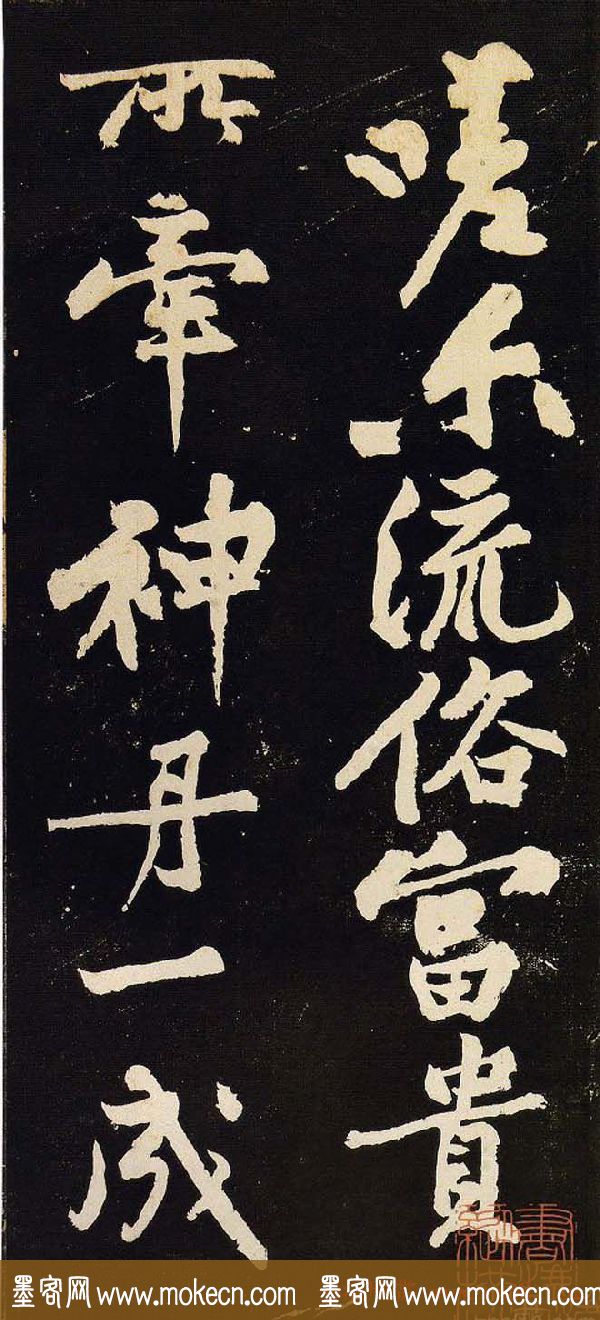 嗟尔流俗富貴
所牽神丹一成
墨客网 www.mokecn.com 墨客网 www.mokecn.com